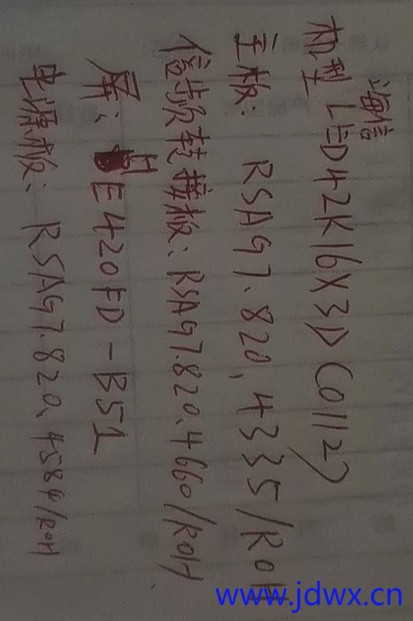 海信
机型 LED42K16X3D(0112)
主板: RSAG7.820.4335/ROH
倍频转接板: RSAG7.820.4660/ROH
屏: HE420FD-B51
电源板: RSAG7.820.4584/ROH
www.jdwx.cn